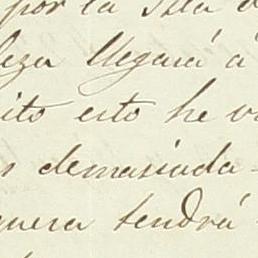 por la Isla
leza llegará á
ito esto he v
s demasiada
nera tendrá